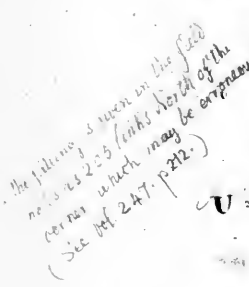 the is given in the field
notes as 2.25 links North of the
corner which may be erroneous
(See vol. 247. p 212.)
U